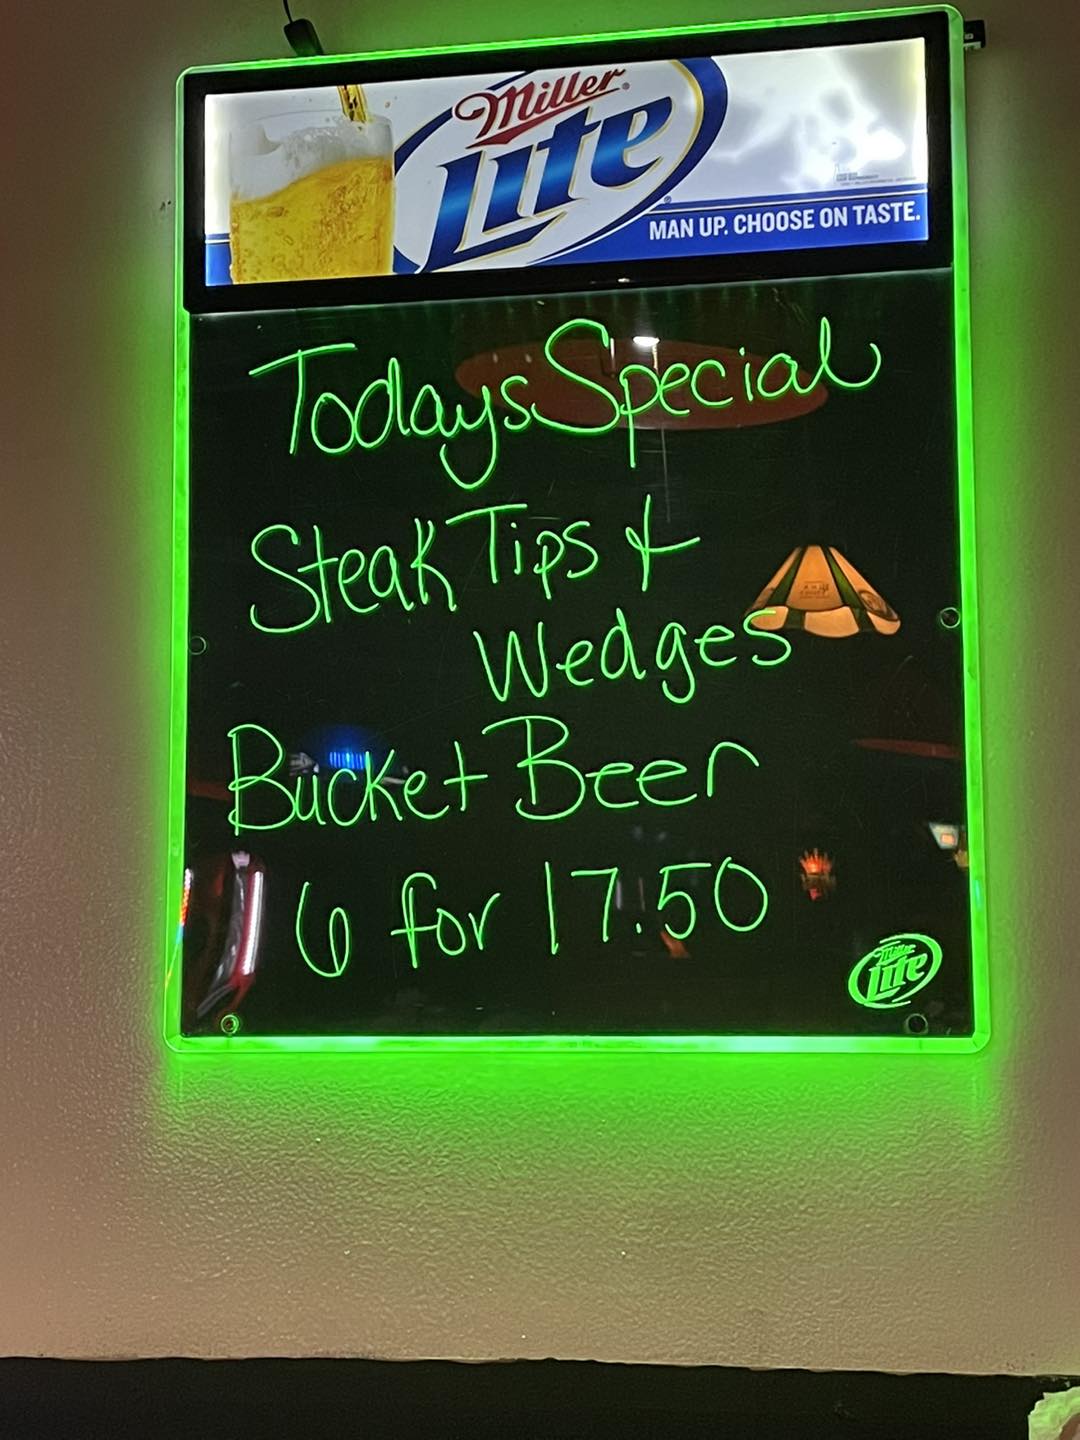 Miller
Lite
MAN UP. CHOOSE ON TASTE.
Todays Special
Steak Tips &
Wedges
Bucket Beer
6 for 17.50
Miller
Lite